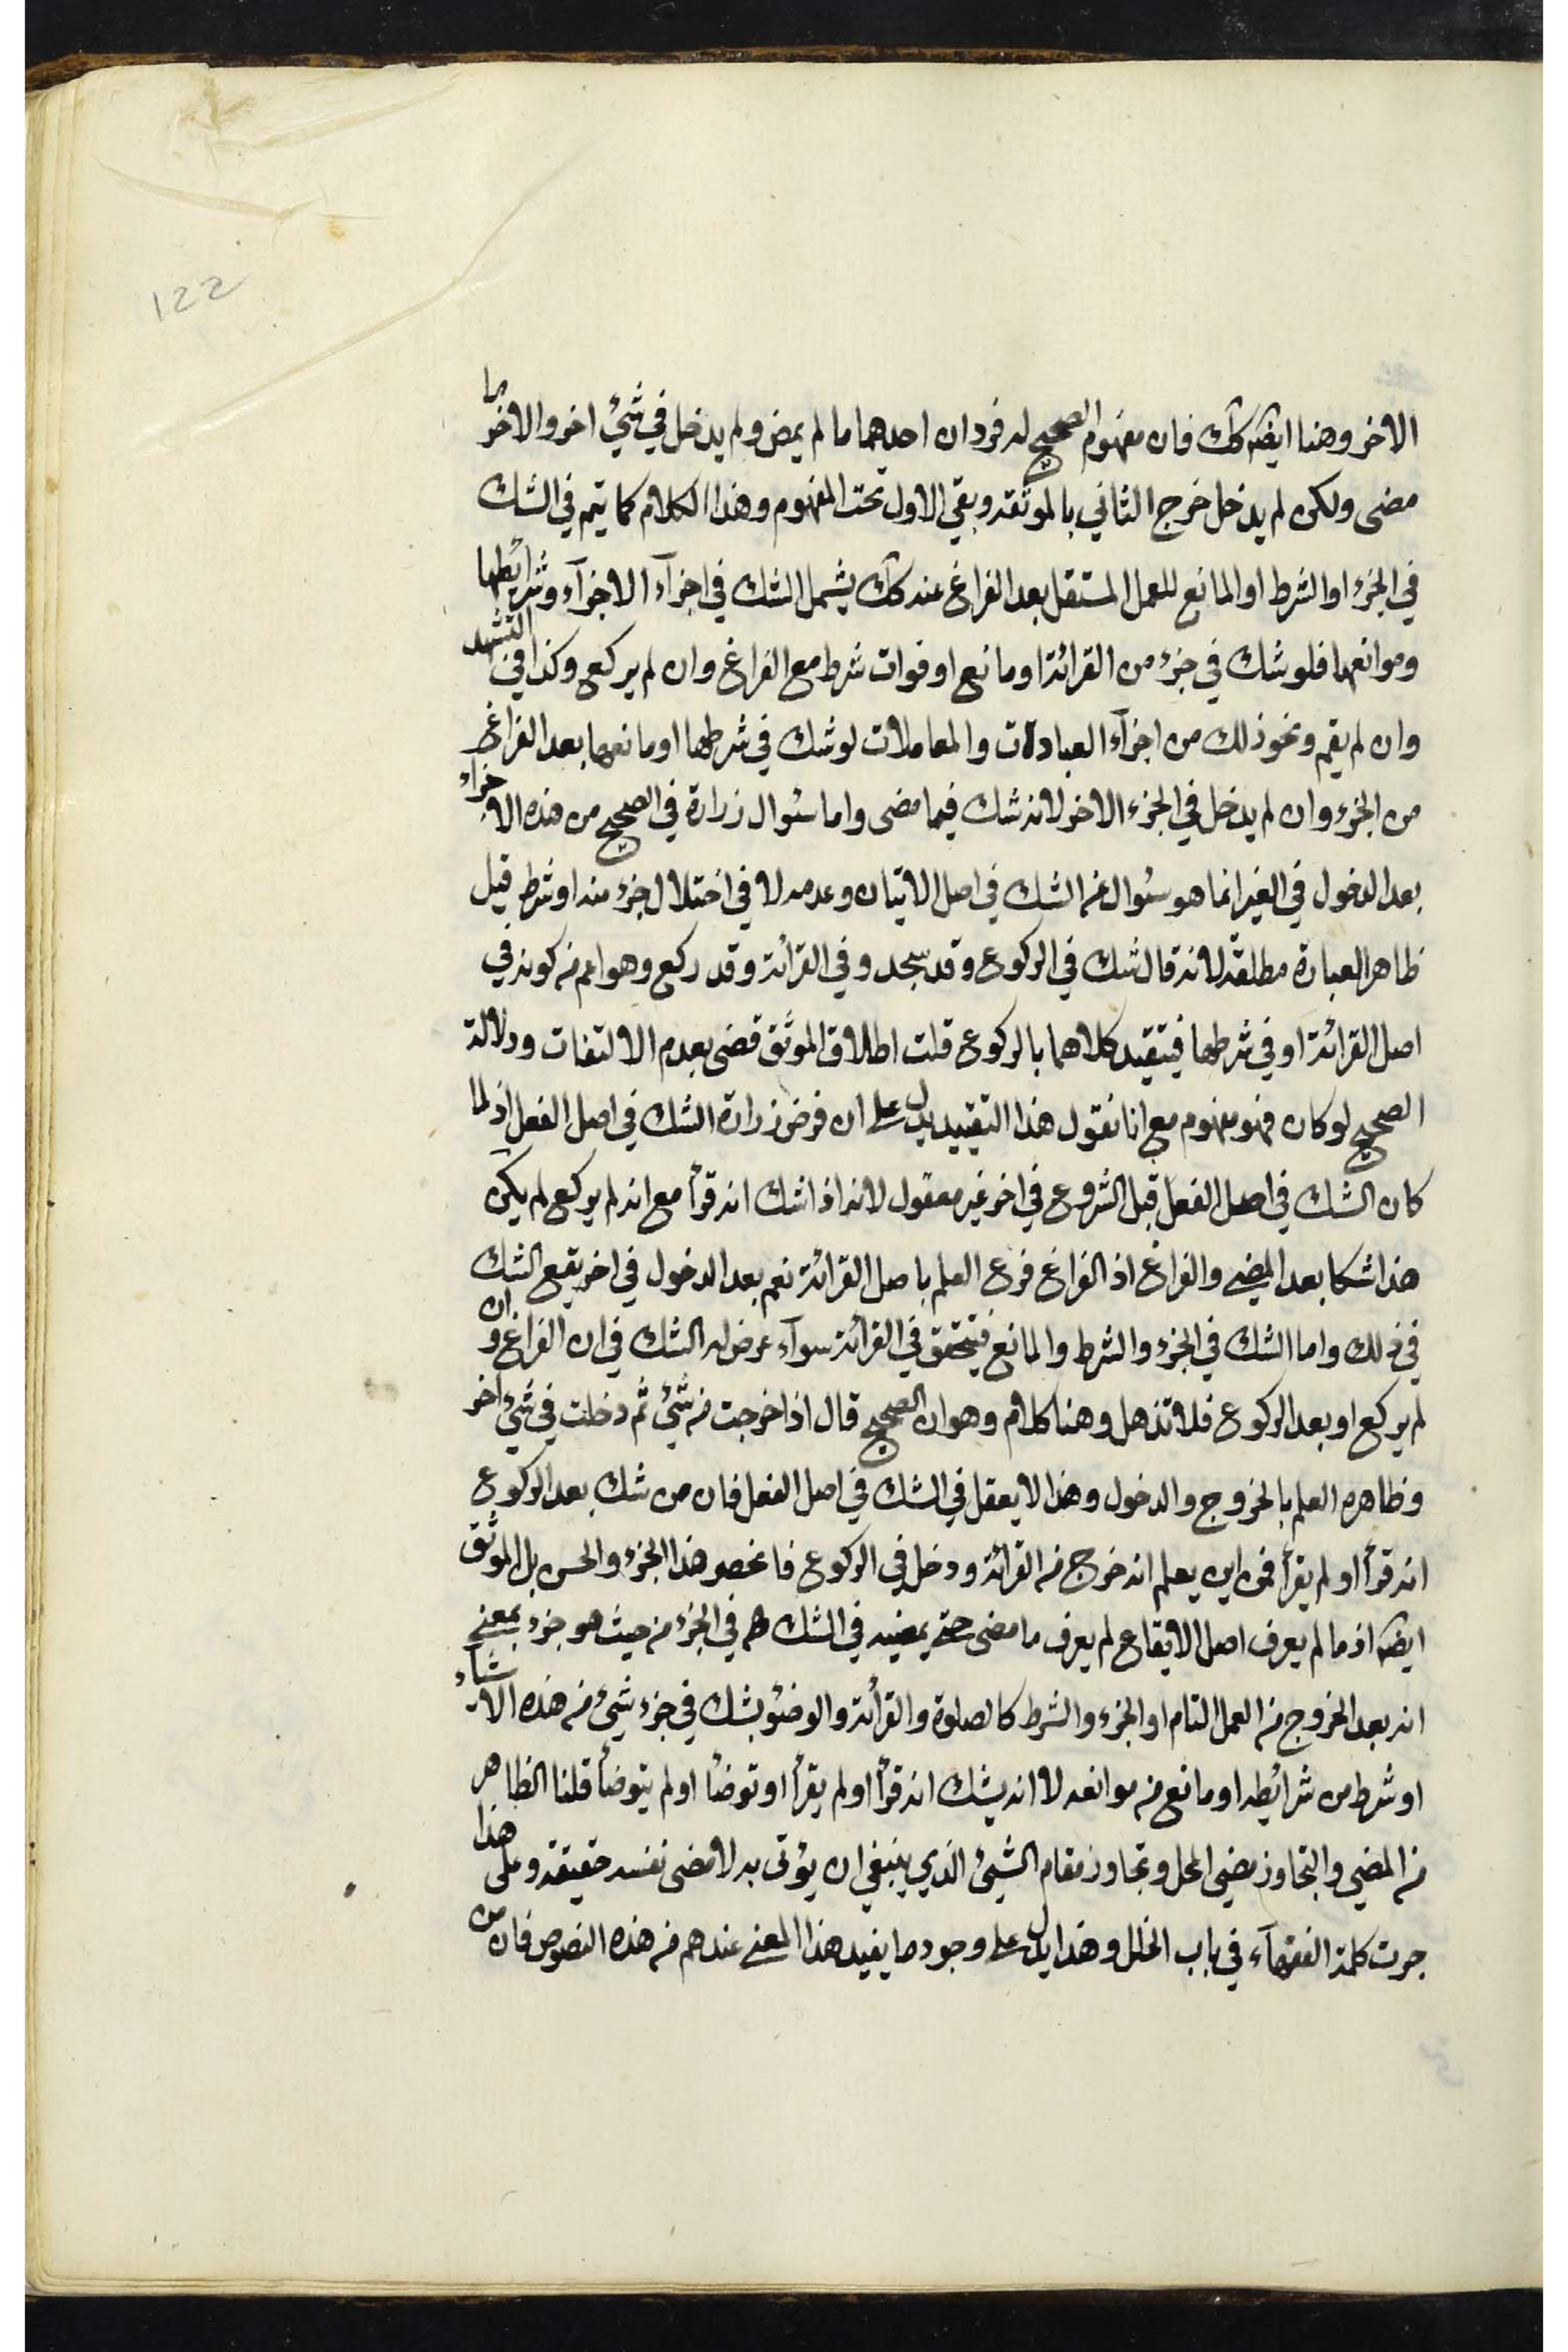 122
الاخر وهنا ايضه كك فان مفهوم الصحيح له فردان احديهما ما لم يمض ولم يدخل في شيئ اخر والاخر ما
مضى ولكن لم يدخل خرج الثاني بالموثقه وبقي الاول تحت المفهوم وهذا الكلام كما يتم في الشك
في الجزء او الشرط او المانع للعمل المستقل بعد الفراغ عنه كك يشمل الشك في اجزآء الاجزآء وشرائطها
وموانعها فلو شك في جزء من القرائة او مانع او فوات شرط مع الفراغ وان لم يركع وكذا في التشهد
وان لم يقم ونحو ذلك من اجزآء العبادات والمعاملات لو شك في شرطها او مانعها بعد الفراغ
من الجزء وان لم يدخل في الجزء الاخر لانه شك فيما مضى واما سئوال زرارة في الصحيح من هذه الاجزاء
بعد الدخول في الغير انما هو سئوال عن الشك في اصل الاتيان وعدمه لا في اختلال جزء منه او شرط قيل
ظاهر العبارة مطلقة لانه قال شك في الركوع وقد سجد وفي القرائة وقد ركع وهو اعم من كونه في
اصل القرائة او في شرطها فيتقيد كلاهما بالركوع قلت اطلاق الموثق قضى بعدم الالتفات ودلالة
الصحيح لو كان فهو مفهوم مع انا نقول هذا التقييد يدل على ان فرض زرارة الشك في اصل الفعل اذ لما
كان الشك في اصل الفعل قبل الشروع في اخر غير معقول لانه اذا شك انه قرأ مع انه لم يركع لم يكن
هذا شكا بعد المضي والفراغ اذ الفراغ فرع العلم باصل القرائة نعم بعد الدخول في اخر يقع الشك
في ذلك واما الشك في الجزء والشرط والمانع فيتحقق في القرائة سوآء عرض له الشك في ان الفراغ وان
لم يركع او بعد الركوع فلا تذهل وهنا كلام وهو ان الصحيح قال اذا خرجت من شيئ ثم دخلت في شيئ اخر
وظاهره العلم بالخروج والدخول وهذا لا يعقل في الشك في اصل الفعل فان من شك بعد الركوع
انه قرأ او لم يقرأ فمن اين يعلم انه خرج من القرائة ودخل في الركوع فانحصر هذا الجزء والحسن بل الموثق
ايضه اذ ما لم يعرف اصل الايقاع لم يعرف ما مضى حتى يمضيه في الشك في الجزء من حيث هو جزء بمعنى
انه بعد الخروج من العمل التام او الجزء والشرط كالصلوة والقرأئة والوضوء يشك في جزء شيئ من هذه الاشيآء
او شرط من شرائطه او مانع من موانعه لا انه يشك انه قرأ او لم يقرأ او توضأ او لم يتوضأ قلنا الظاهر
من المضي والتجاوز مضى المحل وتجاوز مقام الشيئ الذي ينبغي ان يؤتى به لا مضى نفسه حقيقة وعلى هذا
جرت كلمة الفقهآء في باب الخلل وهذا يدل على وجود ما يفيد هذا المعنى عندهم من هذه النصوص فان من